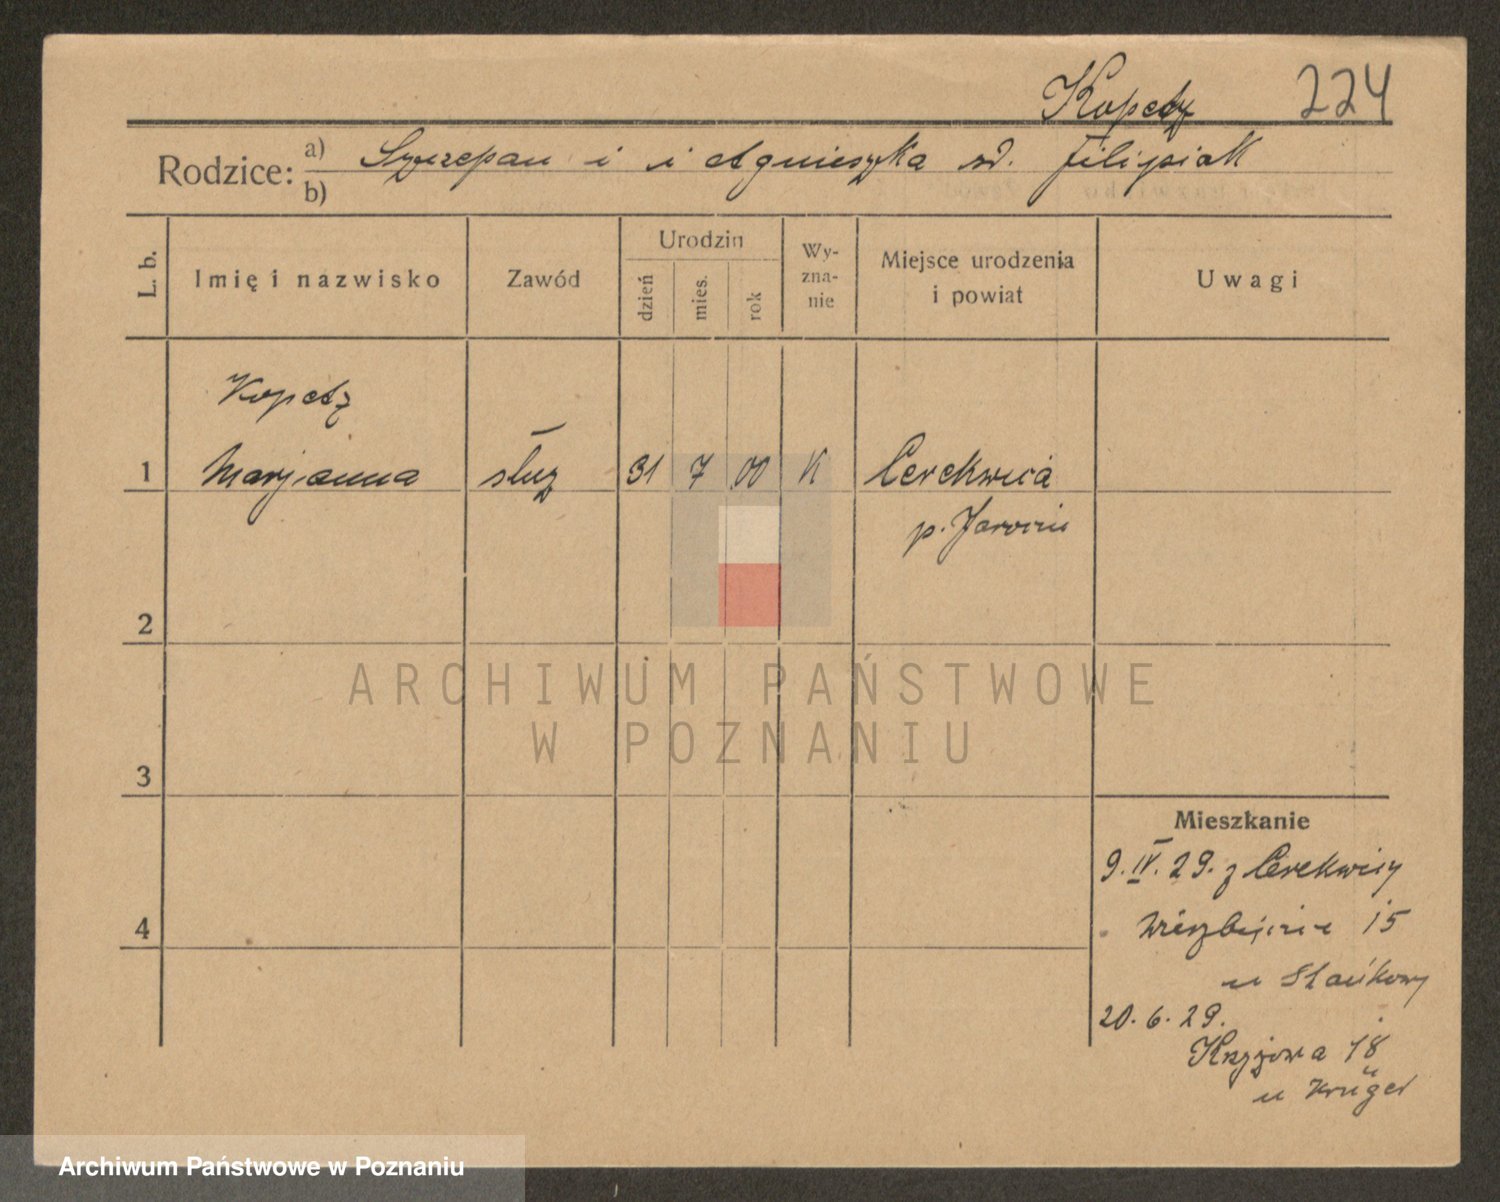 Kopetz 224
Rodzice: a) Szczepan i i Agnieszka zd. Filipiak
b)
L. b. Imię i nazwisko Zawód Urodzin dzień mies. rok Wy-zna-nie Miejsce urodzenia i powiat Uwagi
Kopetz
1 Marjanna służ 31 7 00 K Cerekwica
p. Jarocin
2
ARCHIWUM PAŃSTWOWE
W POZNANIU
3
Mieszkanie
9. IV. 29. z Cerekwicy
4 15
u Stańkowy
20. 6. 29.
Krzyżowa 18
u Krüger
Archiwum Państwowe w Poznaniu